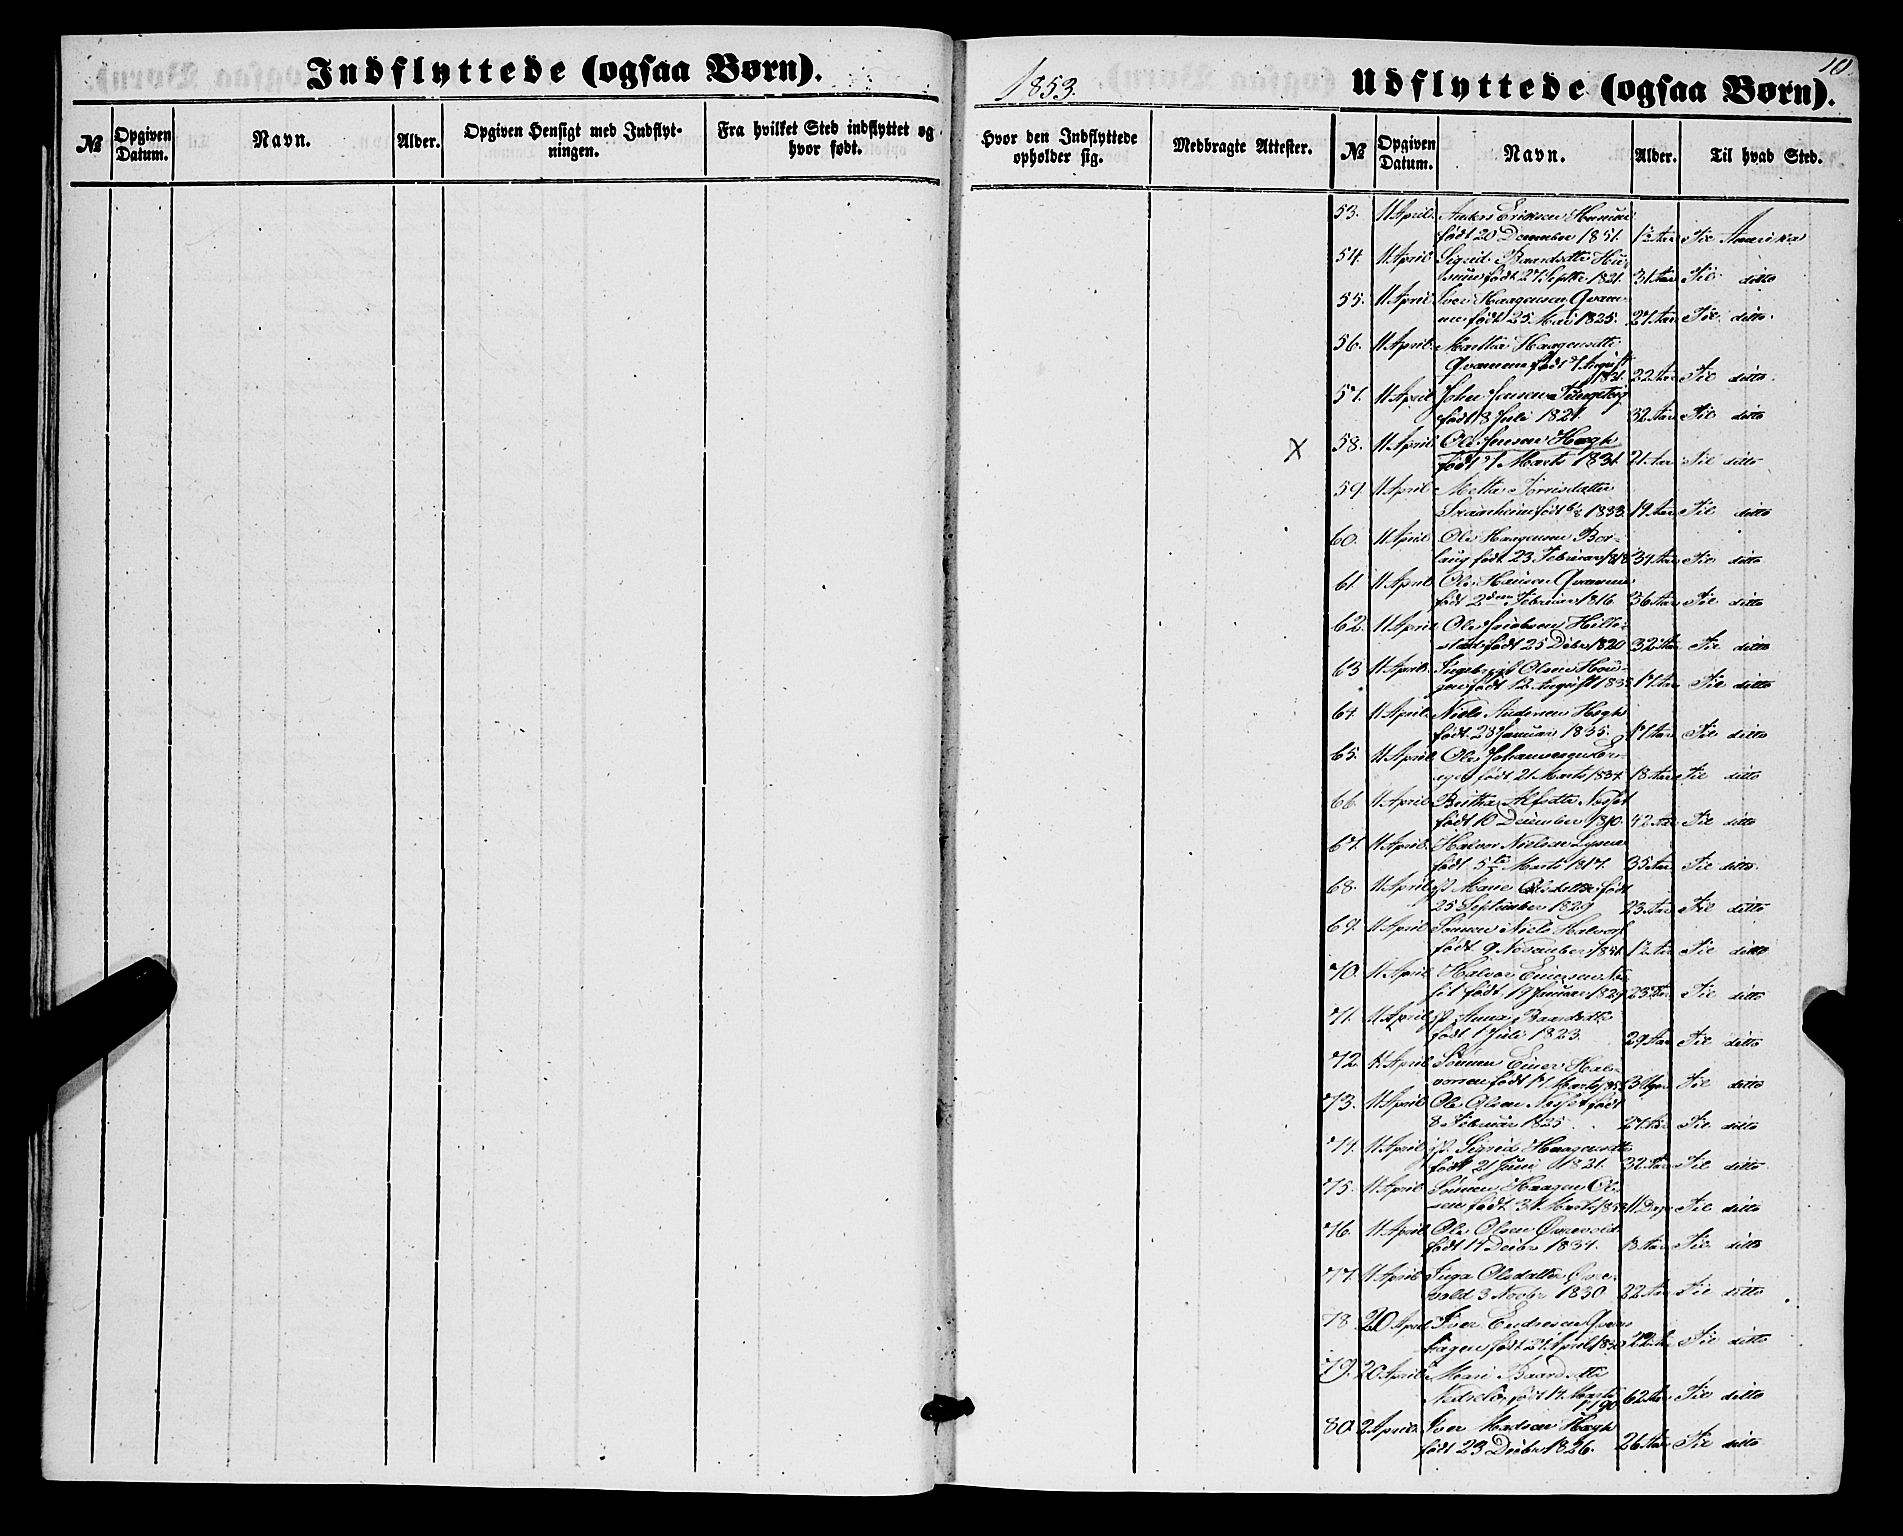 Indflyttede (ogsaa Børn).
№ Opgiven Datum. Navn. Alder. Opgiven Hensigt med Indflyt-ningen. Fra hvilket Sted indflyttet og hvor født.
1853.
Udflyttede (ogsaa Børn).
10
Hvor den Indflyttede opholder sig. Medbragte Attester. № Opgiven Datum. Navn. Alder. Til hvad Sted.
53. 11 April. Eriksen
født 20 December 1851. 1½ Aar Til Amerika
54. 11 April Sigrid Baardsdtr
født 27 Septbr 1821. 31 Aar Til ditto
55. 11 April Iver Haagensen Qvam-
men født 25 Mai 1825. 27 Aar Til ditto.
56. 11 April. Martha Haagensdtr
Qvammen født 7 August
1831. 22 Aar Til ditto.
57. 11 April John Jensen
født 8 Juli 1821. 32 Aar Til ditto
X 58. 11 April Ole Jensen Hægh
født 7 Marts 1831. 21 Aar Til ditto
59. 11 April Metta datter
født 1833. 19 Aar Til ditto
60. 11 April Ole Haagensen Bor-
laug født 23 Februar 1818 39 Aar Til ditto
61. 11 April Ole Hansen Qvamme
født 2den Februar 1816. 36 Aar Til ditto
62. 11 April Ole Jacobsen Hille-
stad født 25 Decbr 1820 32 Aar Til ditto
63 11 April. Ingeborg Olsen Hou-
gen født 12 August 1835 17 Aar Til ditto
64. 11 April. Niels Andersen Hægh
født 28 Januar 1835. 17 Aar Til ditto
65. 11 April Ole
født 21 Marts 1834. 18 Aar Til ditto
66. 11 April Britha Alfsdtr Nesset
født 10 December 1810. 42 Aar Til ditto
67. 11 April. Halvor Nielsen
født 5te Marts 1817. 35 Aar Til ditto.
68. 11 April Marie Olsdatter født
25 September 1829 23 Aar Til ditto
69. 11 April Sønnen Niels Halvors
født 9 November 1851. 1½ Aar Til ditto
70. 11 April Halvor Einersen Nes-
set født 19 Januar 1829 23 Aar Til ditto
71. 11 April Anna Baardsdtr
født 1 Juli 1823. 29 Aar Til ditto
72. 11 April Sønnen Einer Hal-
vorsen født 17 Marts 1853 3 Uger Til ditto
73. 11 April Ole Olsen Nesset født
8 Februar 1825. 27 Aar Til ditto
74. 11 April Sigrid Haagensdtr
født 21 Juni 1821. 32 Aar Til ditto
75. 11 April Sønnen Haagen Ol-
sen født 31 Marts 1853 11 Dage Til ditto
76. 11 April Ole Olsen Øvrevold
født 17 Decbr 1834. 18 Aar Til ditto
77. 11 April Inga Olsdatter Øvre-
vold 3 Novbr 1830. 22 Aar Til ditto
78 20 April Iver Endresen
født 27 April 1830 Til ditto
79. 20 April Mari Baardsdtr
født 14 Marts
1790 62 Aar Til ditto
80. 2 April. Iver Madsen Hægh
født 23 Decbr 1826. 26 Aar Til ditto